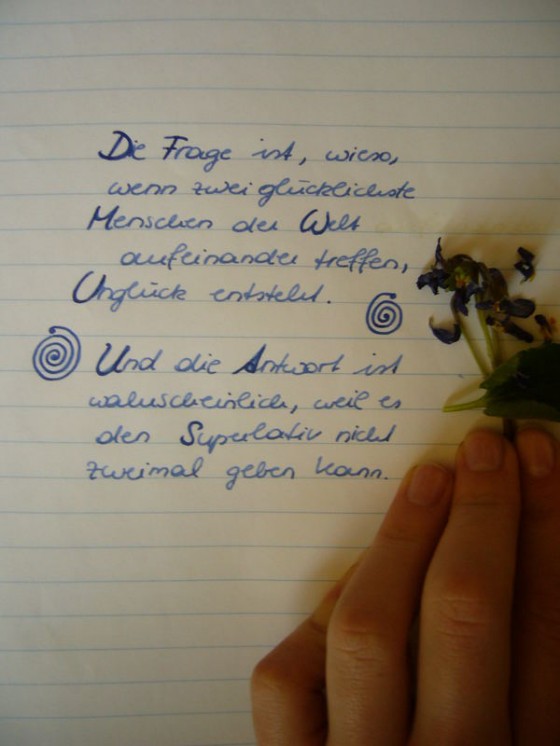 Die Frage ist, wieso,
wenn zwei glücklichste
Menschen der Welt
aufeinander treffen,
Unglück entsteht.
Und die Antwort ist
wahrscheinlich, weil es
den Superlativ nicht
zweimal geben kann.